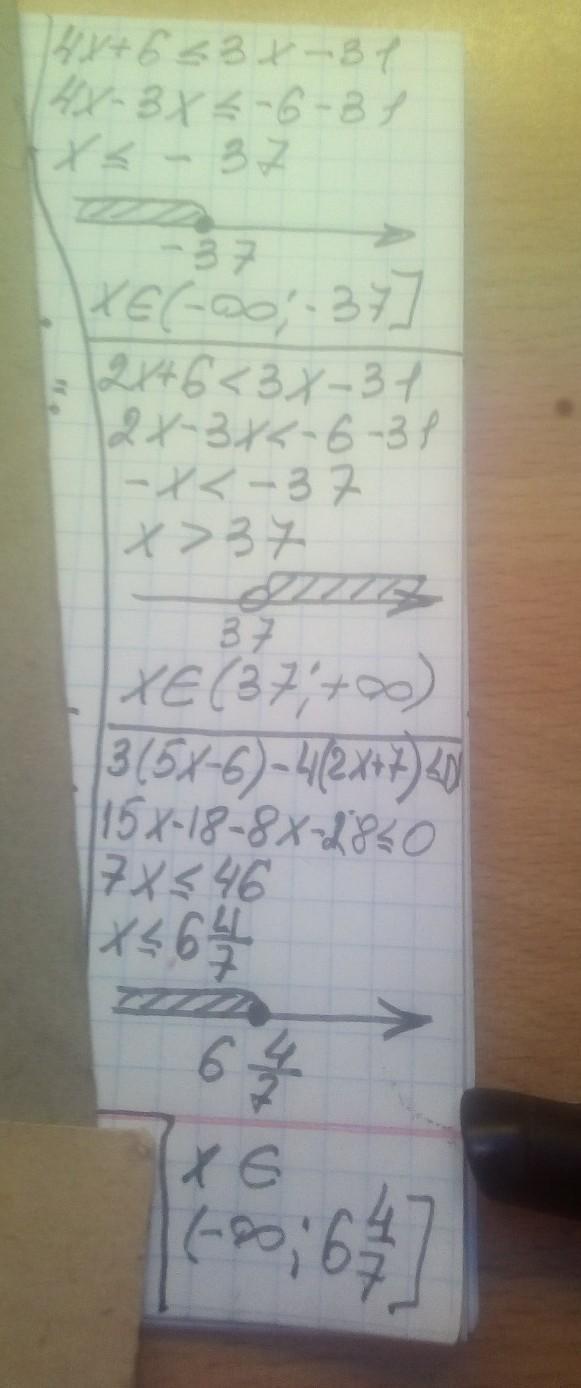 4x+6≤3x-31
4x-3x≤-6-31
x≤-37
-37
x∈(-∞;-37]
2x+6<3x-31
2x-3x<-6-31
-x<-37
x>37
37
x∈(37;+∞)
3(5x-6)-4(2x+7)≤0
15x-18-8x-28≤0
7x≤46
x≤6 4/7
6 4/7
x∈
(-∞;6 4/7]